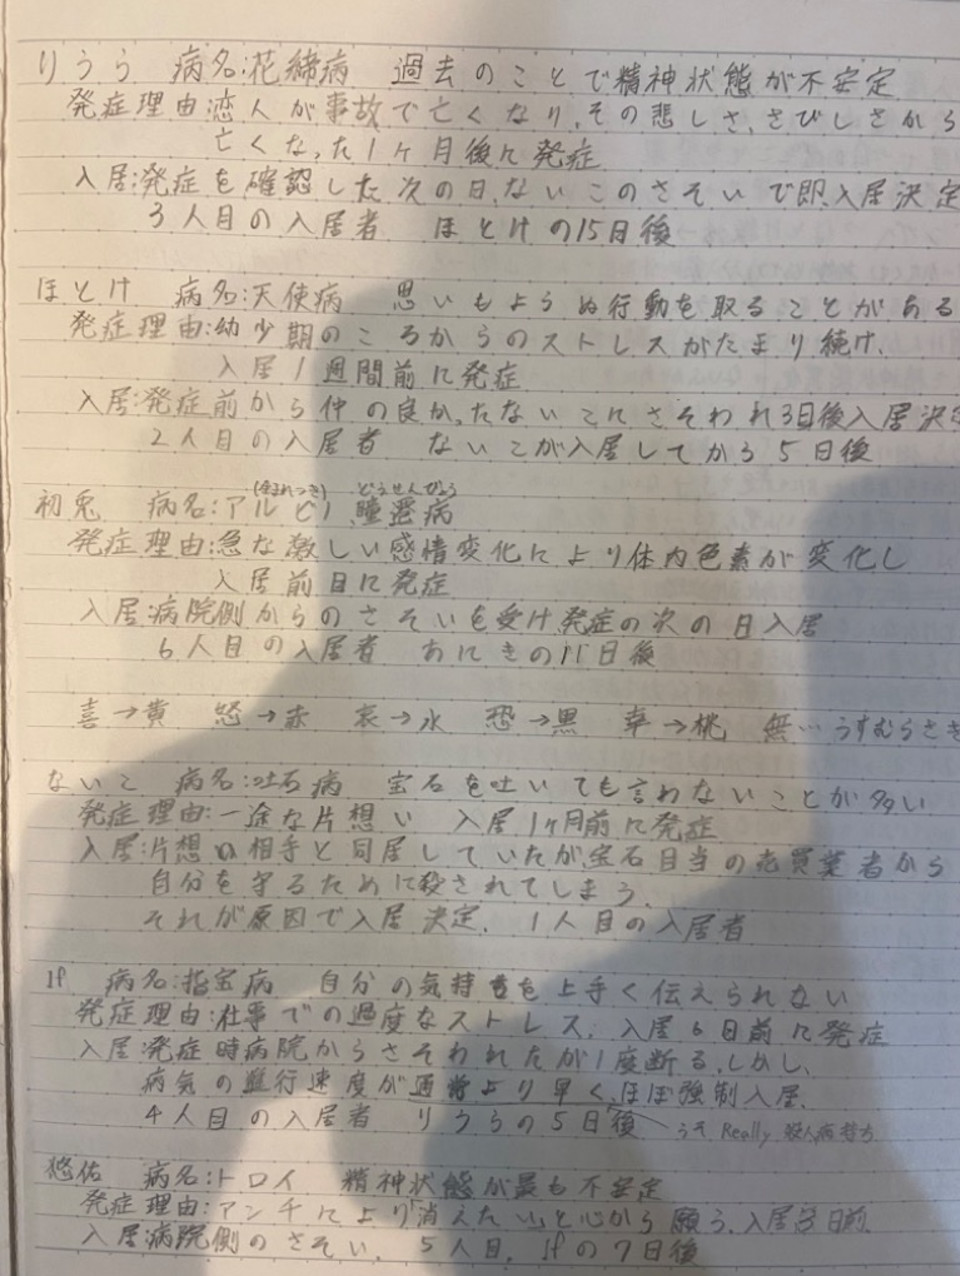 りうら 病名:花締病 過去のことで精神状態が不安定
発症理由:恋人が事故で亡くなり、その悲しさ、さびしさから
亡くなった1ヶ月後に発症
入居:発症を確認した次の日、ないこのさそいで即、入居決定
3人目の入居者 ほとけの15日後
ほとけ 病名:天使病 思いもよらぬ行動を取ることがある
発症理由:幼少期のころからのストレスがたまり続け、
入居1週間前に発症
入居:発症前から仲の良かったないこにさそわれ3日後入居決定
2人目の入居者 ないこが入居してから5日後
(生まれつき) どうせんびょう
初兎 病名:アルビノ、瞳遷病
発症理由:急な激しい感情変化により体内色素が変化し
入居前日に発症
入居:病院側からのさそいを受け発症の次の日入居
6人目の入居者 あにきの11日後
喜→黄 怒→赤 哀→水 恐→黒 幸→桃 無…うすむらさき
ないこ 病名:吐石病 宝石を吐いても言わないことが多い
発症理由:一途な片想い 入居1ヶ月前に発症
入居:片想い相手と同居していたが、宝石目当の売買業者から
自分を守るために殺されてしまう。
それが原因で入居決定。 1人目の入居者
If 病名:指宝病 自分の気持ちを上手く伝えられない
発症理由:仕事での過度なストレス。入居6日前に発症
入居:発症時病院からさそわれたが1度断る。しかし、
病気の進行速度が通常より早く、ほぼ強制入居。
4人目の入居者 りうらの5日後 うそ Really 殺人病持ち
悠佑 病名:トロイ 精神状態が最も不安定
発症理由:アンチにより「消えたい」と心から願う。入居3日前。
入居:病院側のさそい。 5人目。 Ifの7日後